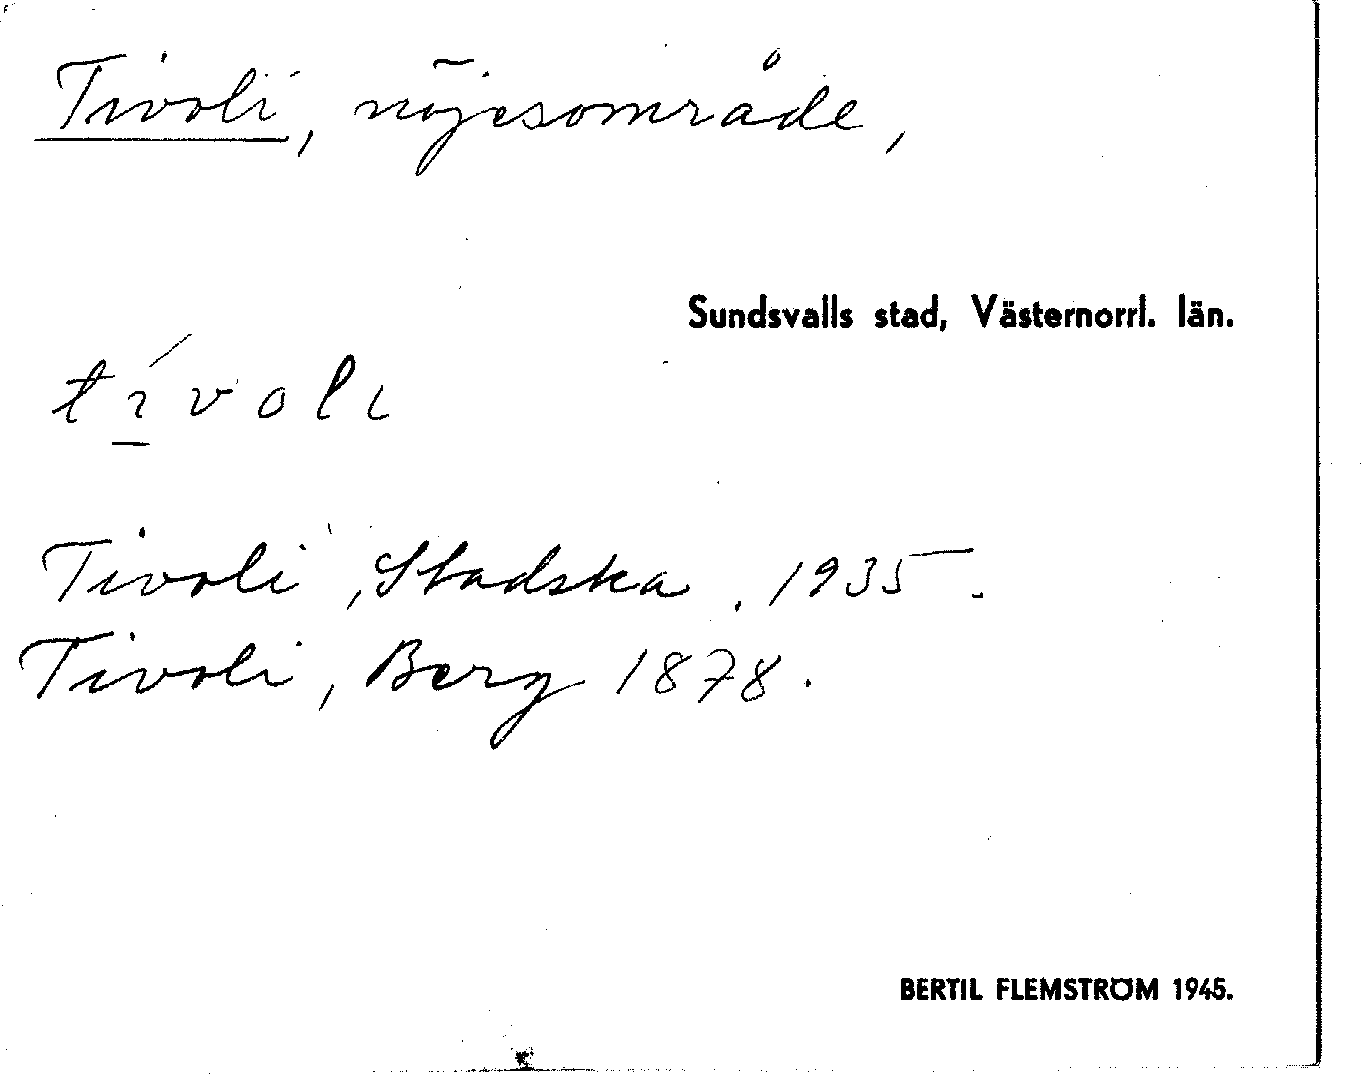 Tivoli, nöjesområde,
Sundsvalls stad, Västernorrl. län.
tívoli
Tivoli, Stadska. 1935.
Tivoli, Berg 1878.
BERTIL FLEMSTRÖM 1945.